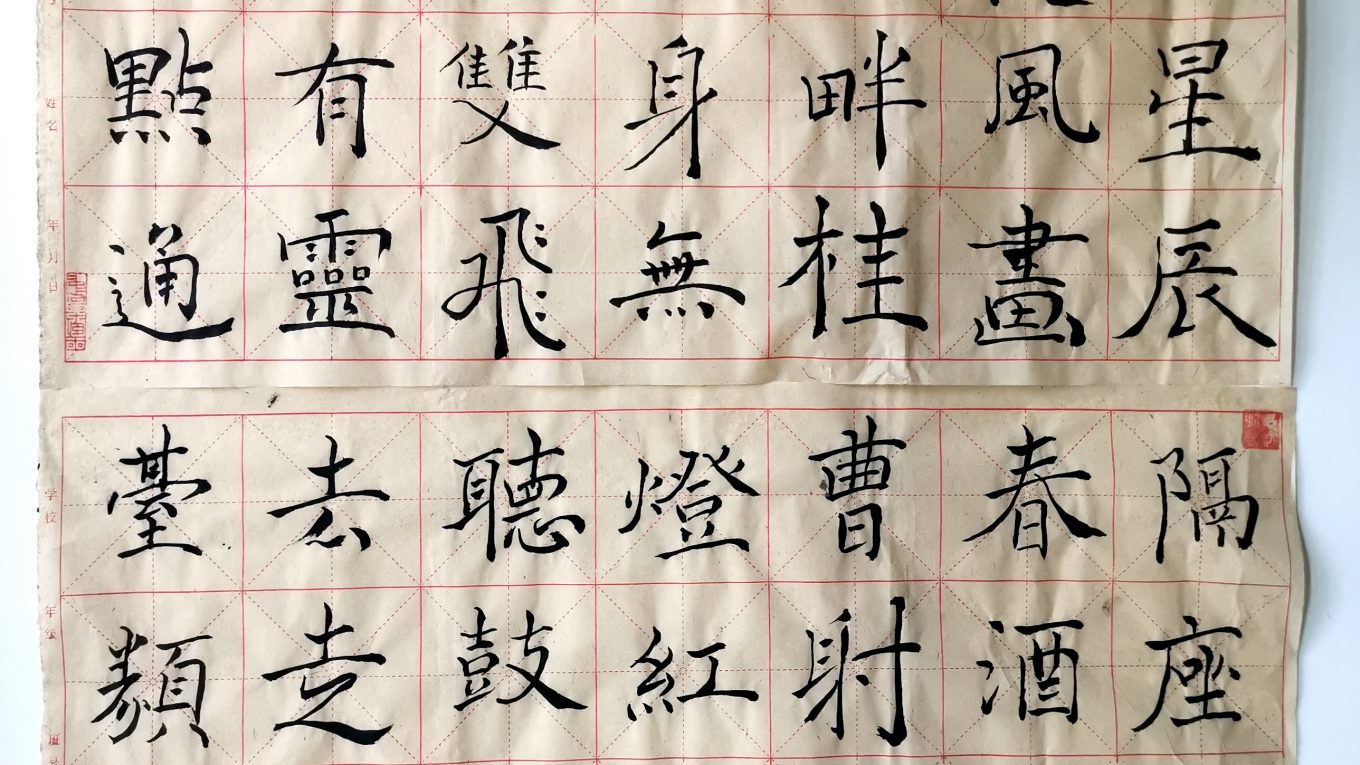 星辰
風畫
畔桂
身無
雙飛
有靈
點通
姓名
年月日
隔座
春酒
曹射
燈紅
聽鼓
去走
臺類
年級